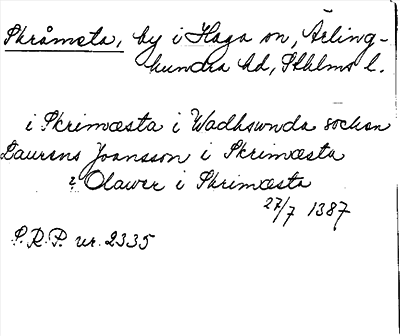 Skråmsta, by i Haga sn, Ärling-
hundra hd, Sthlms l.
i Skrimæsta i Wadhsunda sochen
Laurens Joansson i Skrimæsta
Olawer i Skrimæsta
27/7 1387
S.R.P. nr. 2335